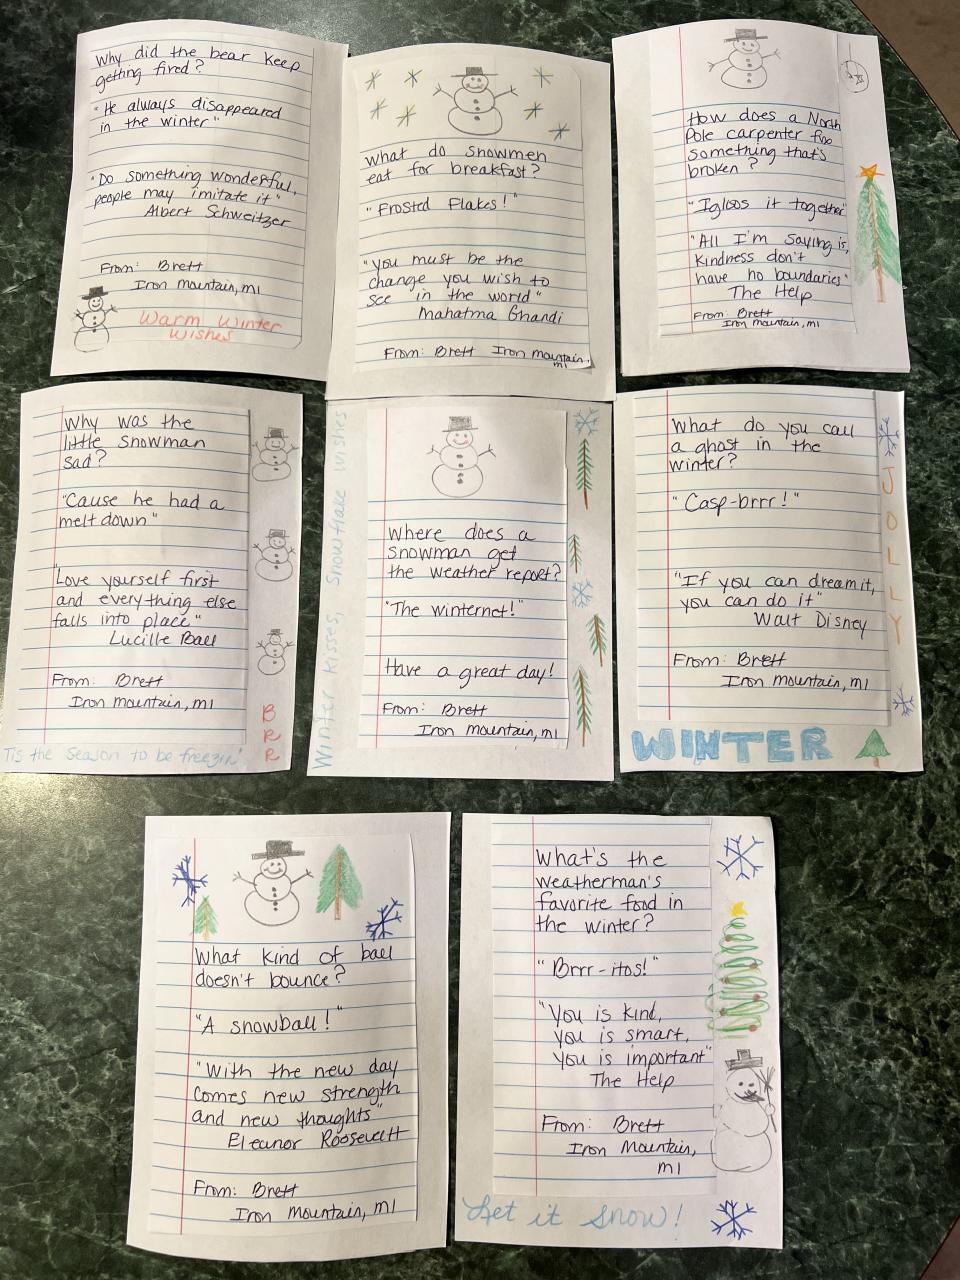 Why did the bear keep
getting fired?
"He always disappeared
in the winter"
"Do something wonderful,
people may imitate it"
Albert Schweitzer
From: Brett
Iron mountain, mi
Warm Winter
Wishes
What do snowmen
eat for breakfast?
"Frosted Flakes!"
"you must be the
change you wish to
see in the world"
Mahatma Ghandi
From: Brett Iron mountain,
mi
How does a North
Pole carpenter fix
something that's
broken?
"Igloos it together"
"All I'm saying is,
Kindness don't
have no boundaries"
The Help
From: Brett
Iron mountain, mi
Why was the
little snowman
sad?
"Cause he had a
melt down"
"Love yourself first
and everything else
falls into place"
Lucille Ball
From: Brett
Iron mountain, mi
BRR
Tis the season to be freezin'
Winter kisses, snowflake wishes
Where does a
snowman get
the weather report?
"The winternet!"
Have a great day!
From: Brett
Iron mountain, mi
What do you call
a ghost in the
winter?
"Casp-brrr!"
"If you can dream it,
you can do it"
Walt Disney
From: Brett
Iron mountain, mi
JOLLY
WINTER
What kind of ball
doesn't bounce?
"A snowball!"
"With the new day
comes new strength
and new thoughts"
Eleanor Roosevelt
From: Brett
Iron mountain, mi
What's the
weatherman's
favorite food in
the winter?
"Brrr-itos!"
"You is kind,
you is smart,
you is important"
The Help
From: Brett
Iron Mountain,
mi
Let it Snow!